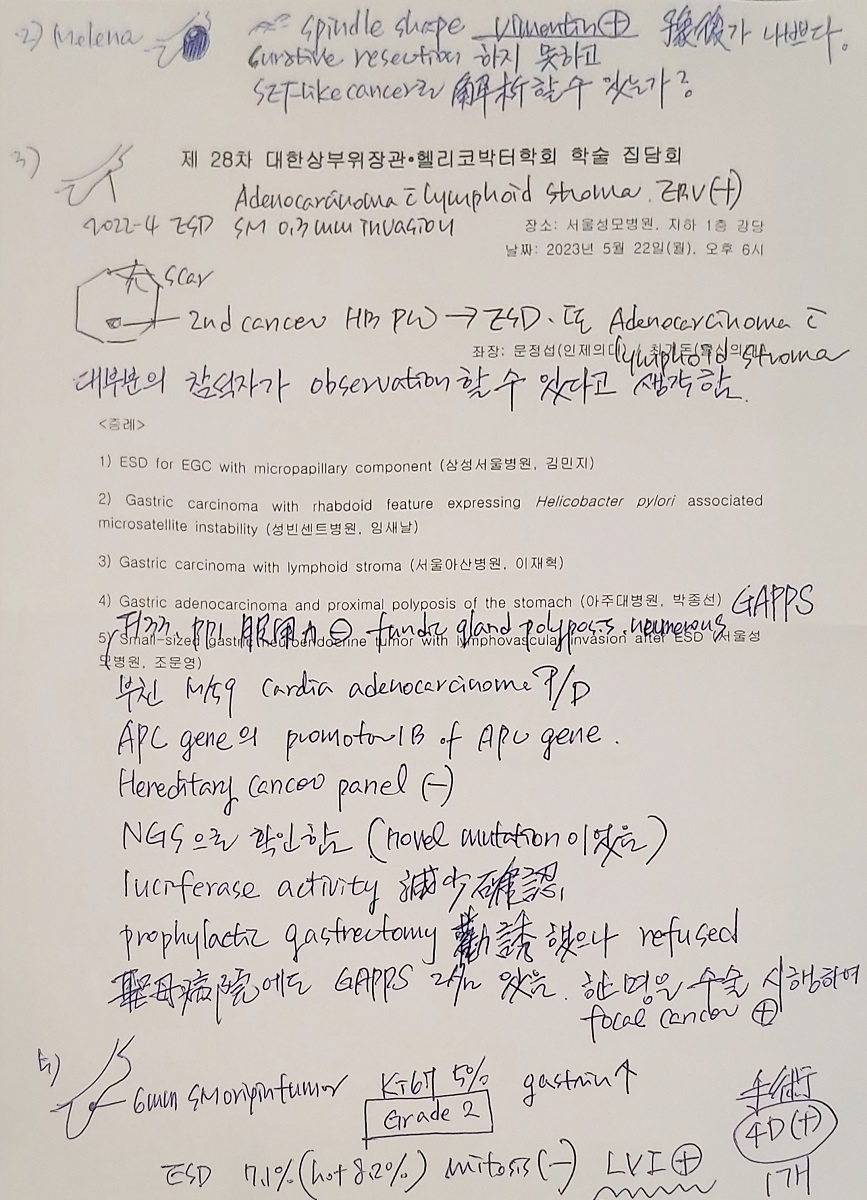 2) Melena
spindle shape Vimentin ⊕ 豫後가 나쁘다.
curative resection 하지 못하고
SET-like cancer로 解析할 수 있는가?
3)
제 28차 대한상부위장관•헬리코박터학회 학술 집담회
Adenocarcinoma c̄ lymphoid stroma. EBV(+)
2022-4 ESD SM 0.3mm invasion
장소: 서울성모병원, 지하 1층 강당
날짜: 2023년 5월 22일(월), 오후 6시
scar
2nd cancer HB PW → ESD. 또 Adenocarcinoma c̄
좌장: 문정섭(인제의대)
lymphoid stroma
대부분의 참석자가 observation 할 수 있다고 생각함.
<증례>
1) ESD for EGC with micropapillary component (삼성서울병원, 김민지)
2) Gastric carcinoma with rhabdoid feature expressing Helicobacter pylori associated
microsatellite instability (성빈센트병원, 임새날)
3) Gastric carcinoma with lymphoid stroma (서울아산병원, 이재혁)
4) Gastric adenocarcinoma and proximal polyposis of the stomach (아주대병원, 박종선) GAPPS
F/33 PPI 服用力 ⊖ fundic gland polyposis. numerous
5) Small-sized gastric neuroendocrine tumor with lymphovascular invasion after ESD (서울성
모병원, 조문영)
부친 M/59 cardia adenocarcinoma P/D
APC gene의 promotor 1B of APC gene.
Hereditary cancer panel (-)
NGS으로 확인함 (novel mutation이었음)
luciferase activity 減少 確認
prophylactic gastrectomy 勸誘했으나 refused
聖母病院에도 GAPPS 2case 있음. 한 명은 수술 시행하여
focal cancer ⊕
5)
6mm SM origin tumor Ki67 5% gastrin↑
Grade 2
手術
4D(+)
1개
ESD 7.1% (hot 8.20%) mitosis(-) LVI ⊕